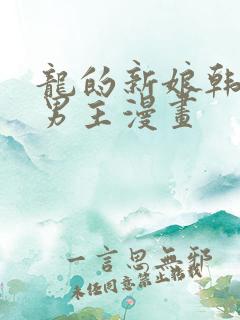 龍的新娘韩
男主漫畫
一言思無邪
未经同意禁止转载